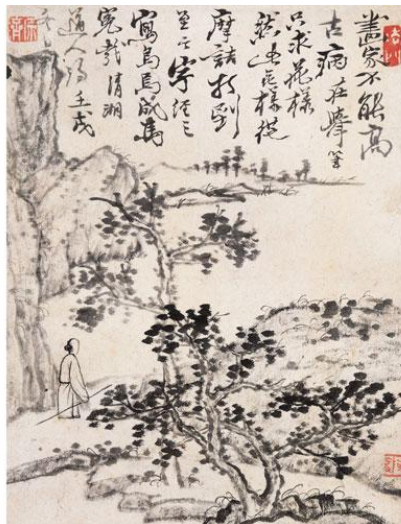 畫家不能高
古病在舉筆
只求花樣
然此花樣從
摩詰打到
至今字經三
寫烏焉成馬
冤哉 清湘
道人 壬戌